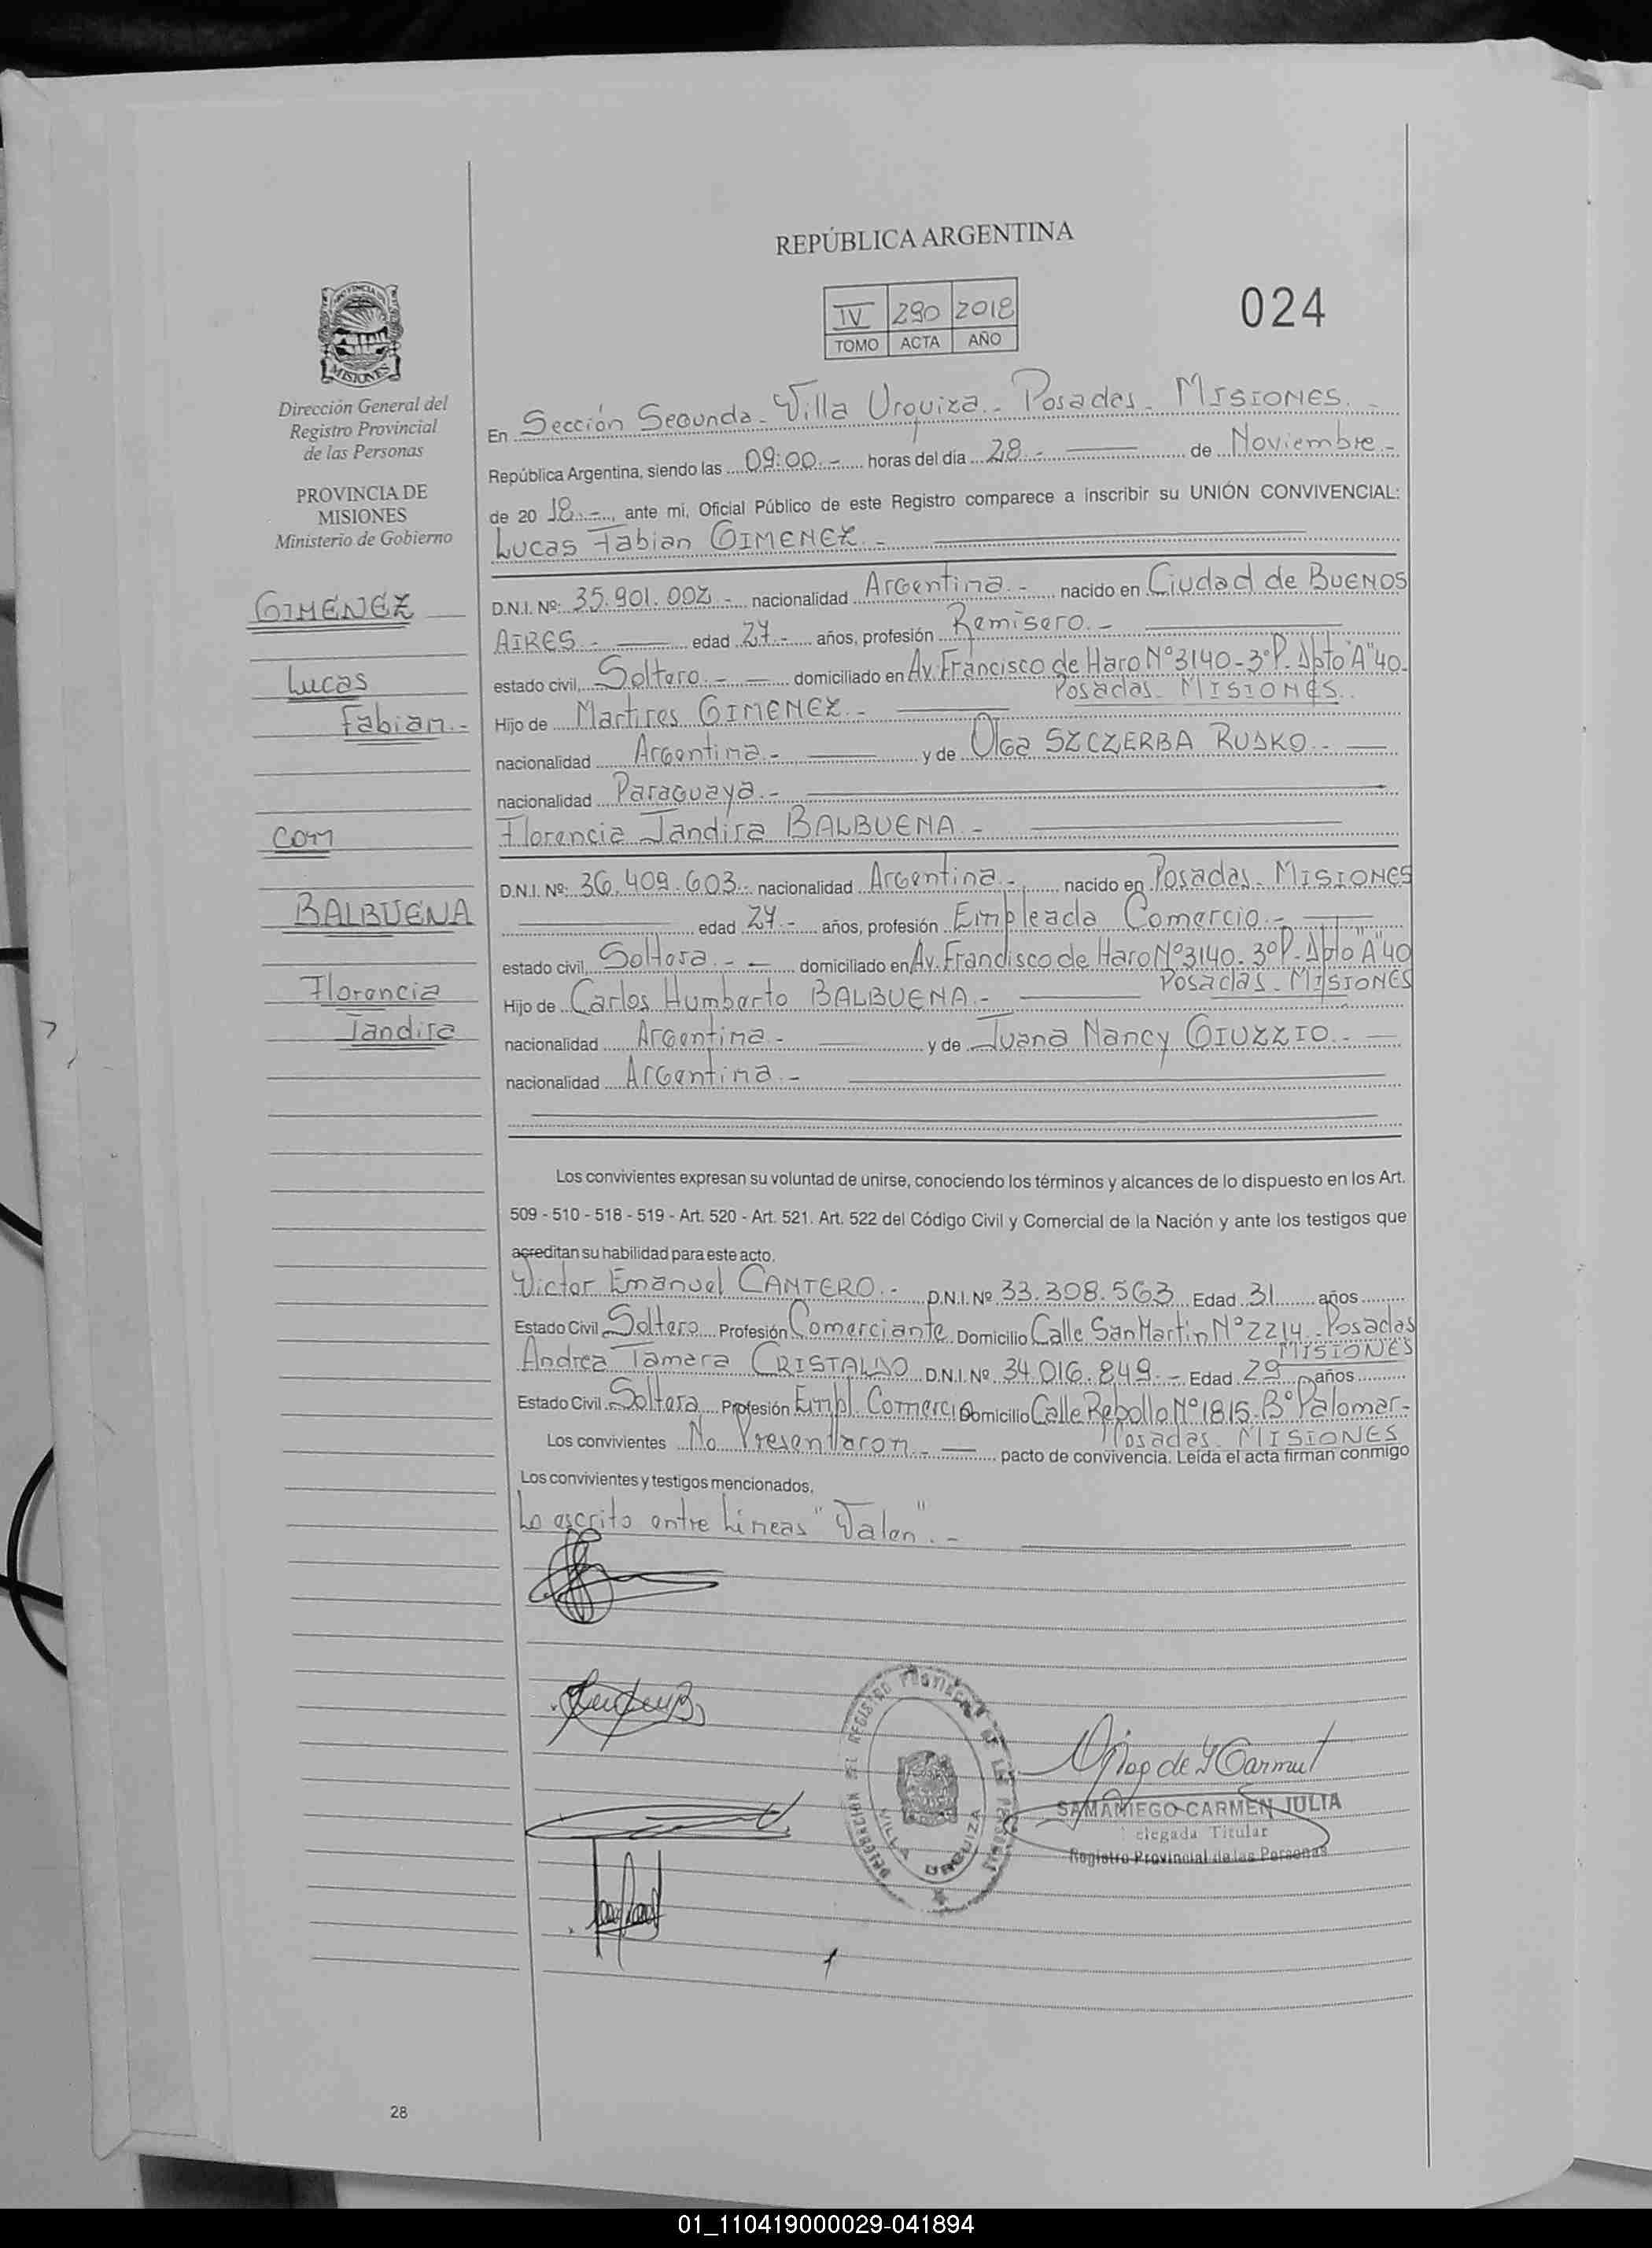 REPÚBLICA ARGENTINA
IV 290 2018
TOMO ACTA AÑO
024
PROVINCIA DE
MISIONES
Dirección General del
Registro Provincial
de las Personas
PROVINCIA DE
MISIONES
Ministerio de Gobierno
GIMENEZ
Lucas
Fabian.-
con
BALBUENA
Florencia
Jandira
En Sección Segunda - Villa Urquiza.- Posadas - MISIONES.-
República Argentina, siendo las 09:00.- horas del día 28.- de Noviembre.-
de 20 18.-, ante mi, Oficial Público de este Registro comparece a inscribir su UNIÓN CONVIVENCIAL:
Lucas Fabian GIMENEZ.-
D.N.I. Nº: 35.901.002.- nacionalidad Argentina.- nacido en Ciudad de BUENOS
AIRES.- edad 27.- años, profesión Remisero.-
estado civil, Soltero.- domiciliado en Av. Francisco de Haro Nº3140-3ºP. Dpto "A" 40-
Posadas - MISIONES.
Hijo de Martires GIMENEZ.-
nacionalidad Argentina.- y de Olga SZCZERBA RUDKO.-
nacionalidad Paraguaya.-
Florencia Jandira BALBUENA.-
D.N.I. Nº: 36.409.603.- nacionalidad Argentina.- nacido en Posadas - MISIONES
edad 27.- años, profesión Empleada Comercio.-
estado civil, Soltera.- domiciliado en Av. Francisco de Haro Nº3140-3ºP-Dpto "A" 40
Posadas - MISIONES
Hijo de Carlos Humberto BALBUENA.-
nacionalidad Argentina.- y de Juana Nancy GIUZZIO.-
nacionalidad Argentina.-
Los convivientes expresan su voluntad de unirse, conociendo los términos y alcances de lo dispuesto en los Art.
509 - 510 - 518 - 519 - Art. 520 - Art. 521. Art. 522 del Código Civil y Comercial de la Nación y ante los testigos que
acreditan su habilidad para este acto.
Victor Emanuel CANTERO.- D.N.I. Nº 33.308.563 Edad 31 años
Estado Civil Soltero Profesión Comerciante Domicilio Calle San Martin Nº 2214 - Posadas
MISIONES
Andrea Tamara CRISTALDO D.N.I. Nº 34.016.849.- Edad 29 años
Estado Civil Soltera Profesión Empl. Comercio Domicilio Calle Rebollo Nº1815-Bº Palomar-
Posadas - MISIONES
Los convivientes No Presentaron.- pacto de convivencia. Leida el acta firman conmigo
Los convivientes y testigos mencionados.
Lo escrito entre Lineas "Valen".-
DELEGACION DEL REGISTRO PROVINCIAL DE LAS PERSONAS
VILLA URQUIZA
SAMANIEGO CARMEN JULIA
elegada Titular
Registro Provincial de las Personas
28
01_110419000029-041894